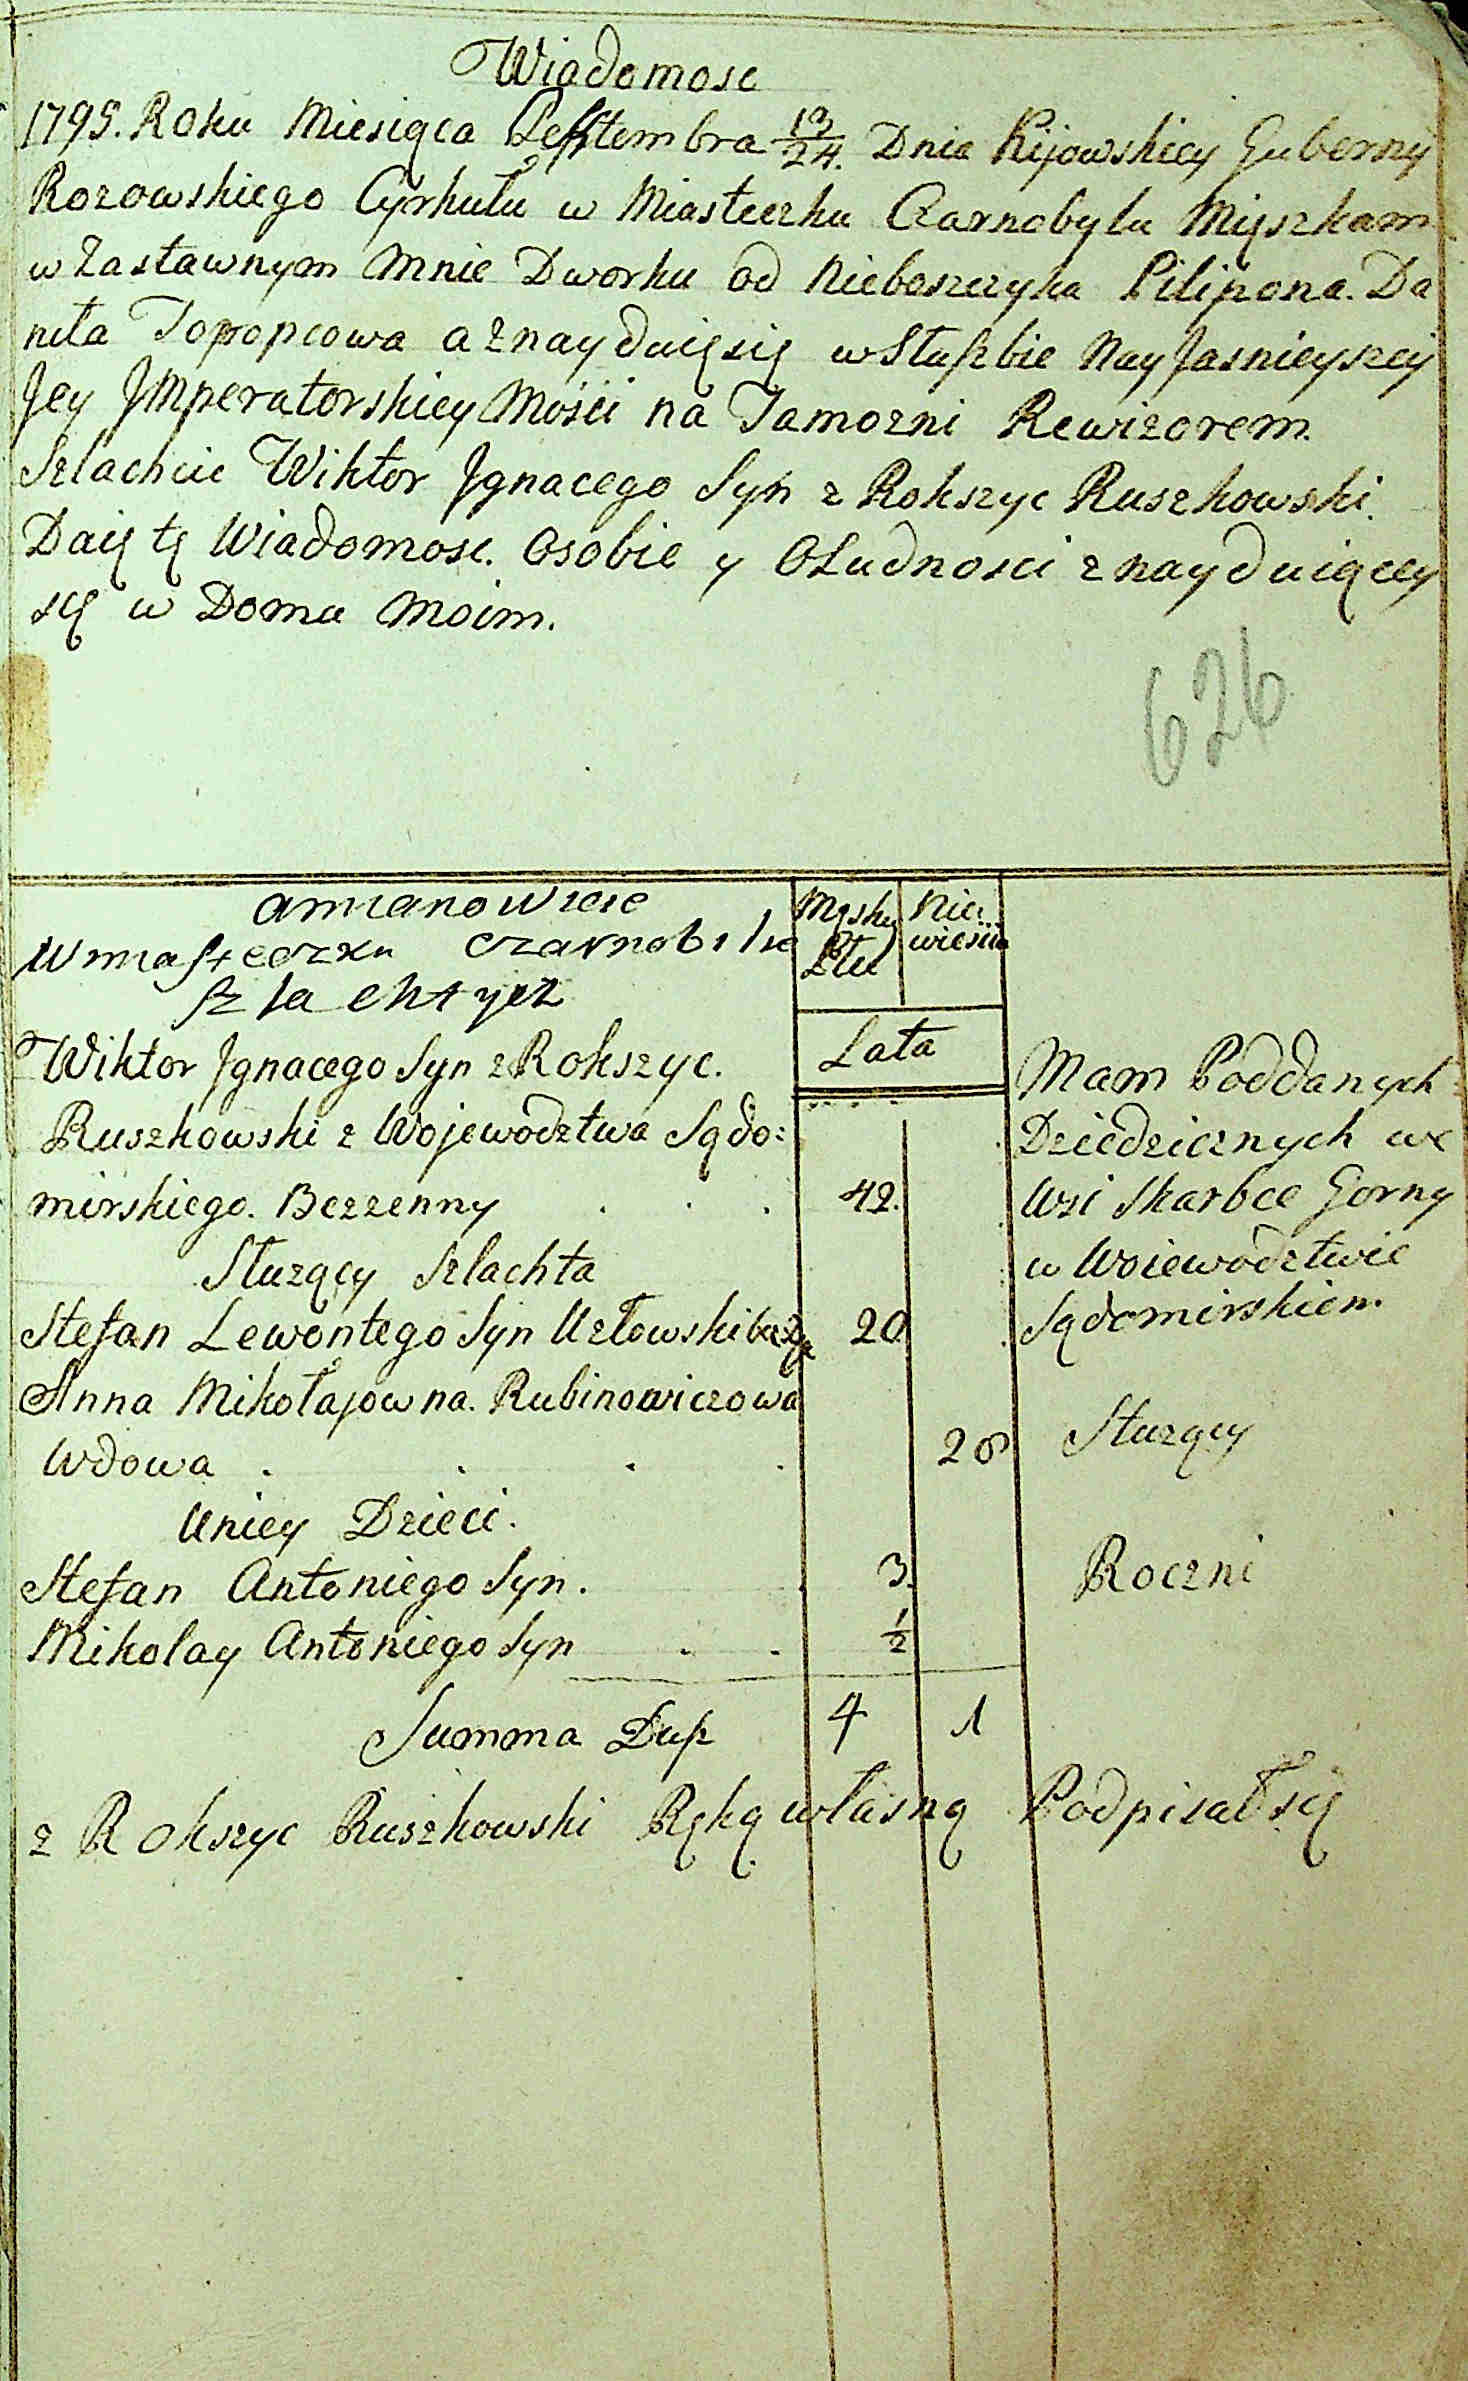 Wiadomosc
1795. Roku Miesiąca Septembra 13/24. Dnia Kijowskiey Guberny
Rozowskiego Cyrkułu w Miasteczku Czarnobylu Mięszkam
w Zastawnym Mnie Dworku od Nieboszczyka Pilipona. Da
niła Topopcowa a znayduię się w Służbie Nay Jasnieyszej
Jey JMperatorskiey Mości na Tamozni Rewizorem.
Szlachcic Wiktor Jgnacego Syn z Rokszyc Ruszkowski.
Daię tę Wiadomosc. Osobie y OLudnosci znayduiącey
się w Domu Moim.
626
amianowicie
Wmiasteczku Czarnobilu
szlachtycz
Męsky Płu
Nie: wiesiia
Lata
Wiktor Jgnacego Syn z Rokszyc.
Ruszkowski z Wojewodztwa Sądo:
mirskiego. Bezzenny . . . 42.
Mam Poddanych
Dziedzicznych we
Wsi Skarbce Gorny
w Woiewodztwie
Sądomirskiem.
Służący Szlachta
Stefan Lewontego Syn Uzłowski 20
Anna Mikołajowna. Rubinowiczowa
Wdowa . . . . 28
Służący
Uniey Dzieci.
Stefan Antoniego Syn. 3.
Roczni
Mikolay Antoniego Syn . . 1/2
Summa Dusz 4 1
z Rokszyc Ruszkowski Ręką własną Podpisał się